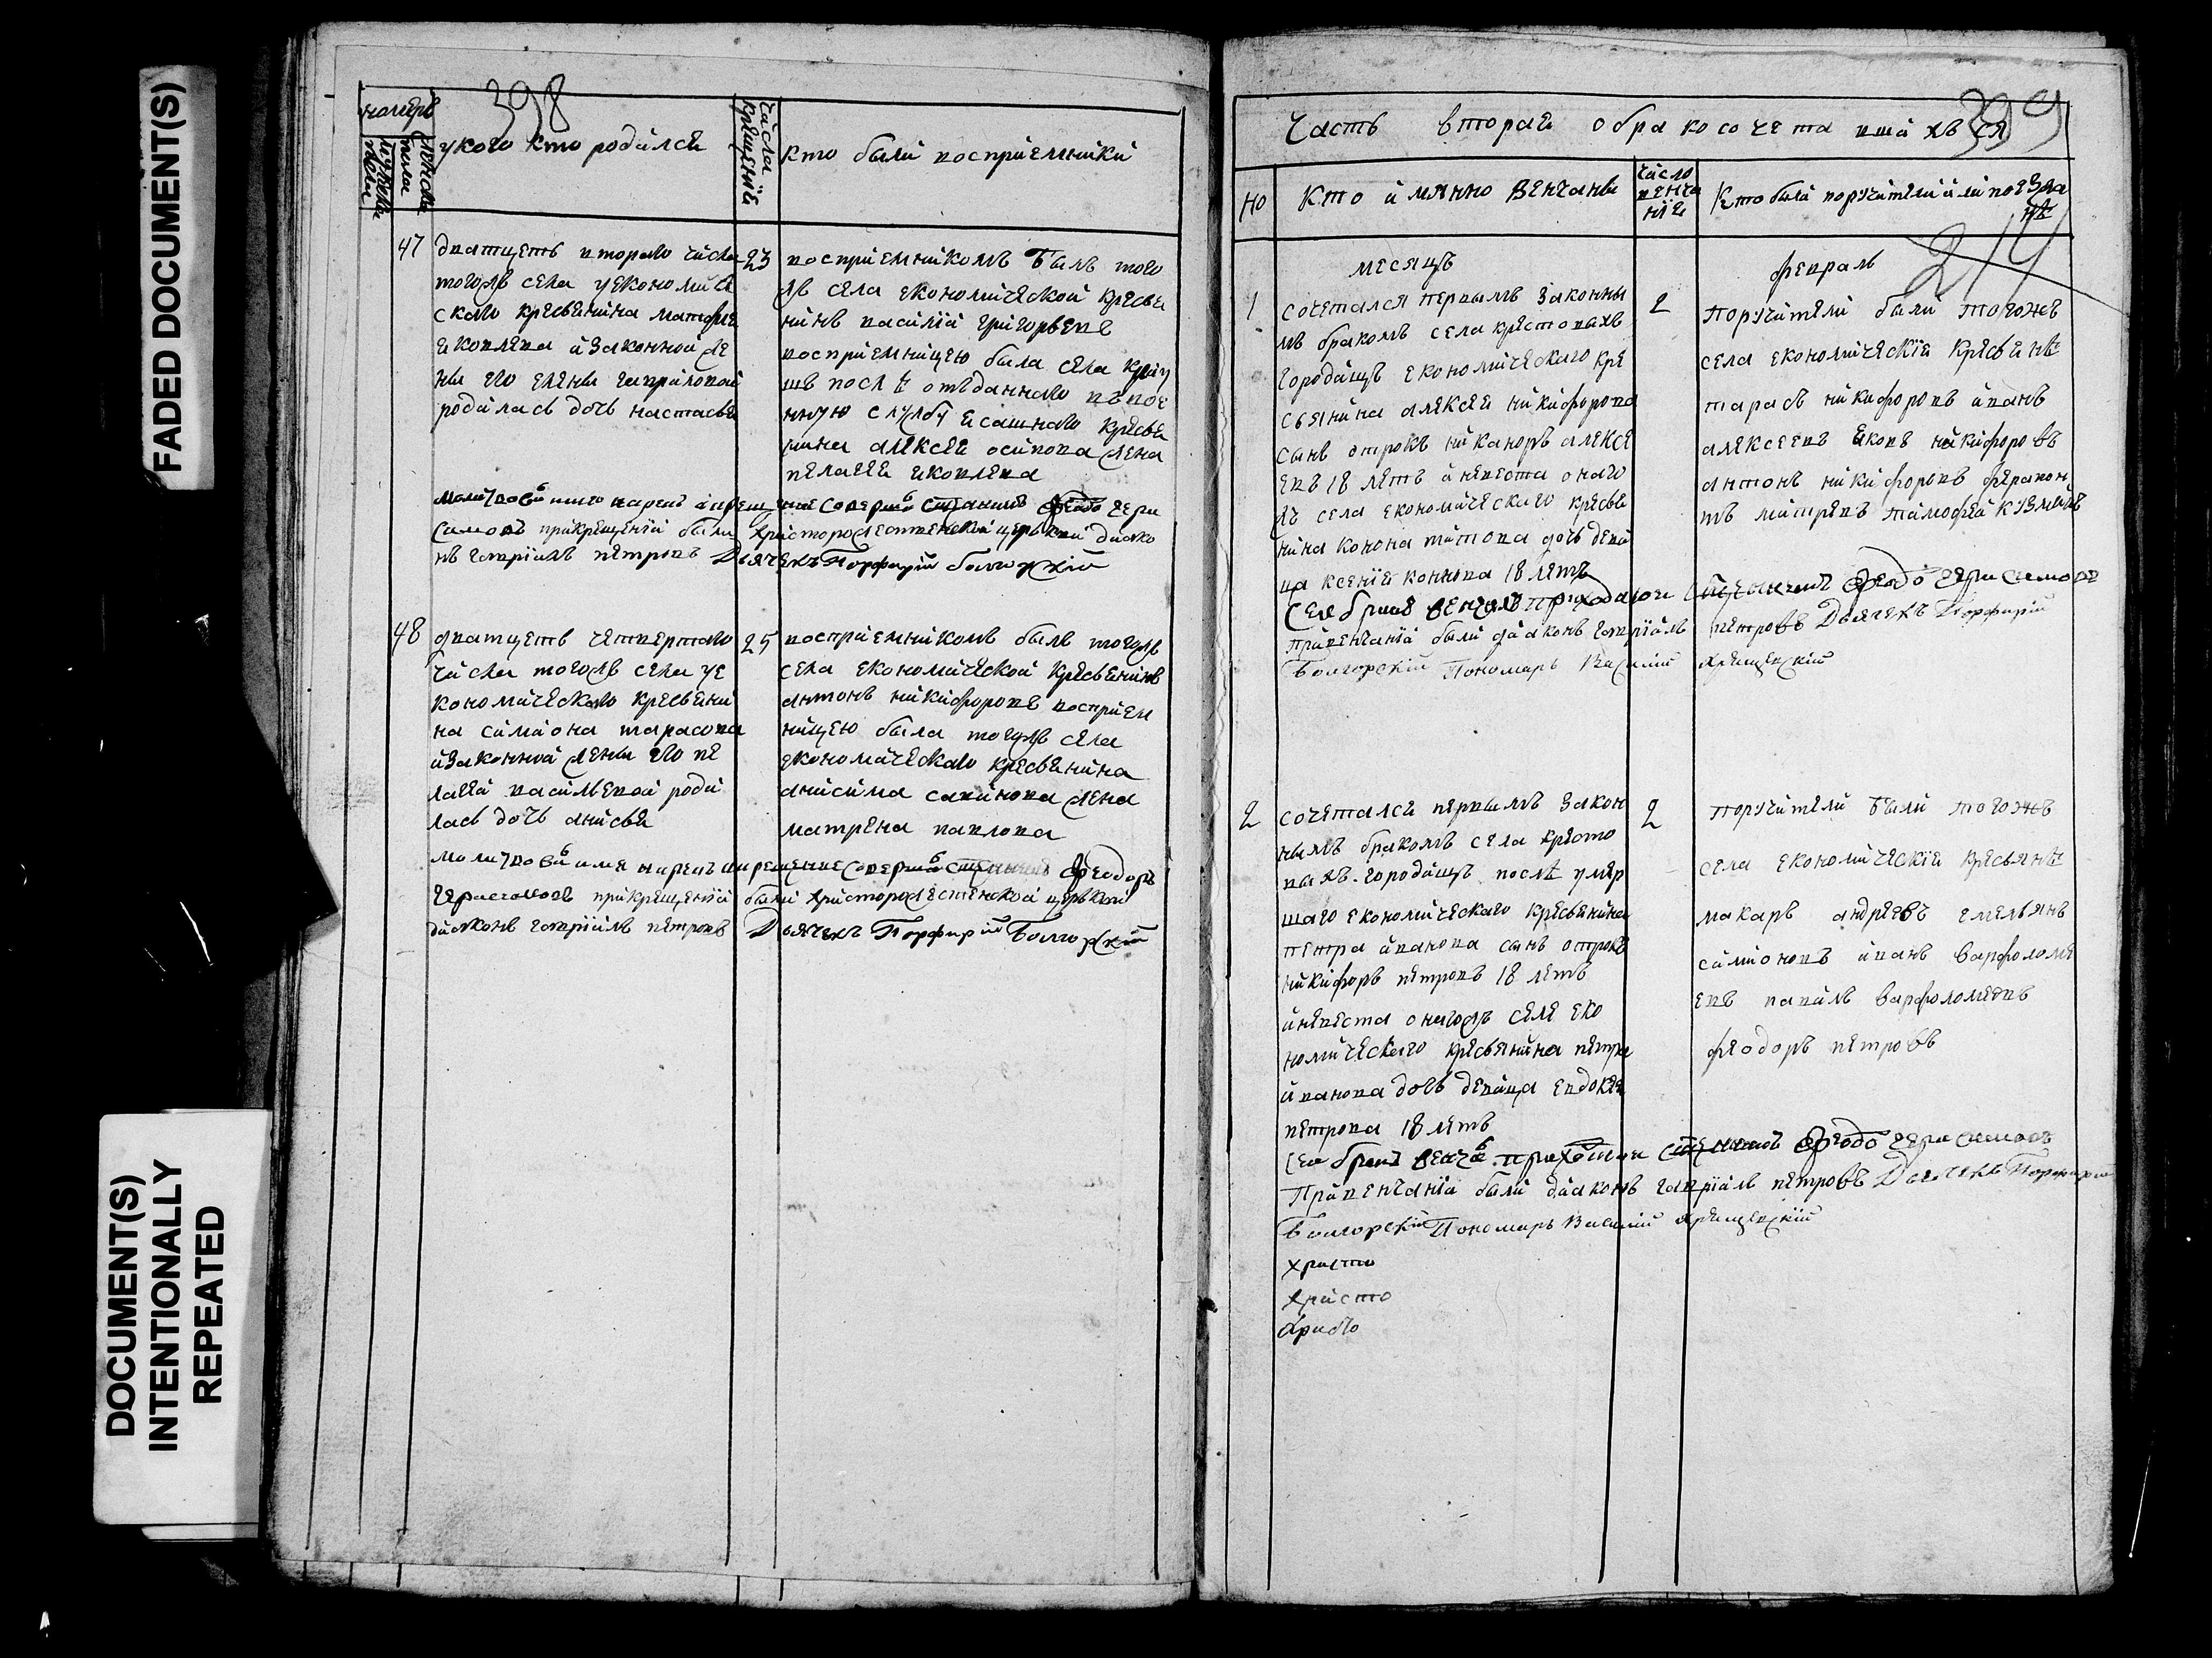 FADED DOCUMENT(S)
DOCUMENT(S)
INTENTIONALLY
REPEATED
398
номеръ
мужеска пола
женска пола
укого кто родился
числа крещения
кто были восприемники
47
дватцеть втораго числа
тогожъ села уекономиче
скаго кресьянина матфея
яковлева изаконной же
ны его елены гавриловой
родилась дочь настасья
23
восприемникомъ былъ того
жъ села економической кресья
нинъ василий григорьевъ
восприемницею была села
после отъданнаго въвое
нную службу ясашнаго кресья
нина алексея осипова жена
пелагея яковлева
молитвовалъ имя нарекъ икрещение совершилъ священникъ феодоръ гера
симовъ прикрещении были христорождественской церькви дияко
нъ гавриилъ петровъ Дьячекъ Порфирий болгорский
48
дватцеть четвертаго
числа тогожъ села уе
кономическаго кресьяни
на симиона тарасова
изаконной жены его пе
лагеи васильевой роди
лась дочь анисья
25
восприемникомъ былъ тогожъ
села економической кресьянинъ
антонъ никифоровъ восприем
ницею была тогожъ села
економическаго кресьянина
анисима савинова жена
матрена павлова
молитвовалъ имя нарекъ икрещение совершилъ священникъ Феодоръ
Герасимовъ прикрещении были христорождественской церькви
дияконъ гавриилъ петровъ Дьячекъ Порфирий Болгорский
399
Часть вторая обракосочетавшихъся
но
Кто имянно Венчаны
число венчания
Кто были поручители или поезжанѣ
214
месяцъ
февраль
1
сочетался первымъ законны
мъ бракомъ села крестовыхъ
городищъ економическаго кре
сьянина алексея никифорова
сынъ отрокъ никаноръ алексе
евъ 18 летъ иневеста онаго
жъ села економическаго кресья
нина конона титова дочь деви
ца ксения конова 18 летъ
2
поручители были тогожъ
села економические кресьянѣ
тарасъ никифоровъ иванъ
алексеевъ яковъ никифоровъ
антонъ никифоровъ ферапон
тъ митревъ тимофей кузминъ
Сей бракъ венчалъ приходской священникъ Феодоръ Герасимовъ
привенчании были диаконъ гавриилъ петровъ Дьячекъ Порфирий
Болгорский Пономарь Василий хрящевский
2
сочетался первымъ закон
нымъ бракомъ села кресто
выхъ городищъ послѣ умер
шаго економическаго кресьянина
петра иванова сынъ отрокъ
никифоръ петровъ 18 летъ
иневеста онагожъ селе еко
номическаго кресьянина петра
иванова дочь девица евдокея
петрова 18 летъ
2
поручители были тогожъ
села економические кресьянѣ
макаръ андреевъ емельянъ
симионовъ иванъ варфоломе
евъ павилъ варфоломеевъ
феодоръ петровъ
Сей бракъ венчалъ приходской священникъ Феодоръ Герасимовъ
Привенчании были диаконъ гавриилъ петровъ Дьячекъ Порфирий
Болгорский Пономарь Василий хрящевский
христо
христо
христо